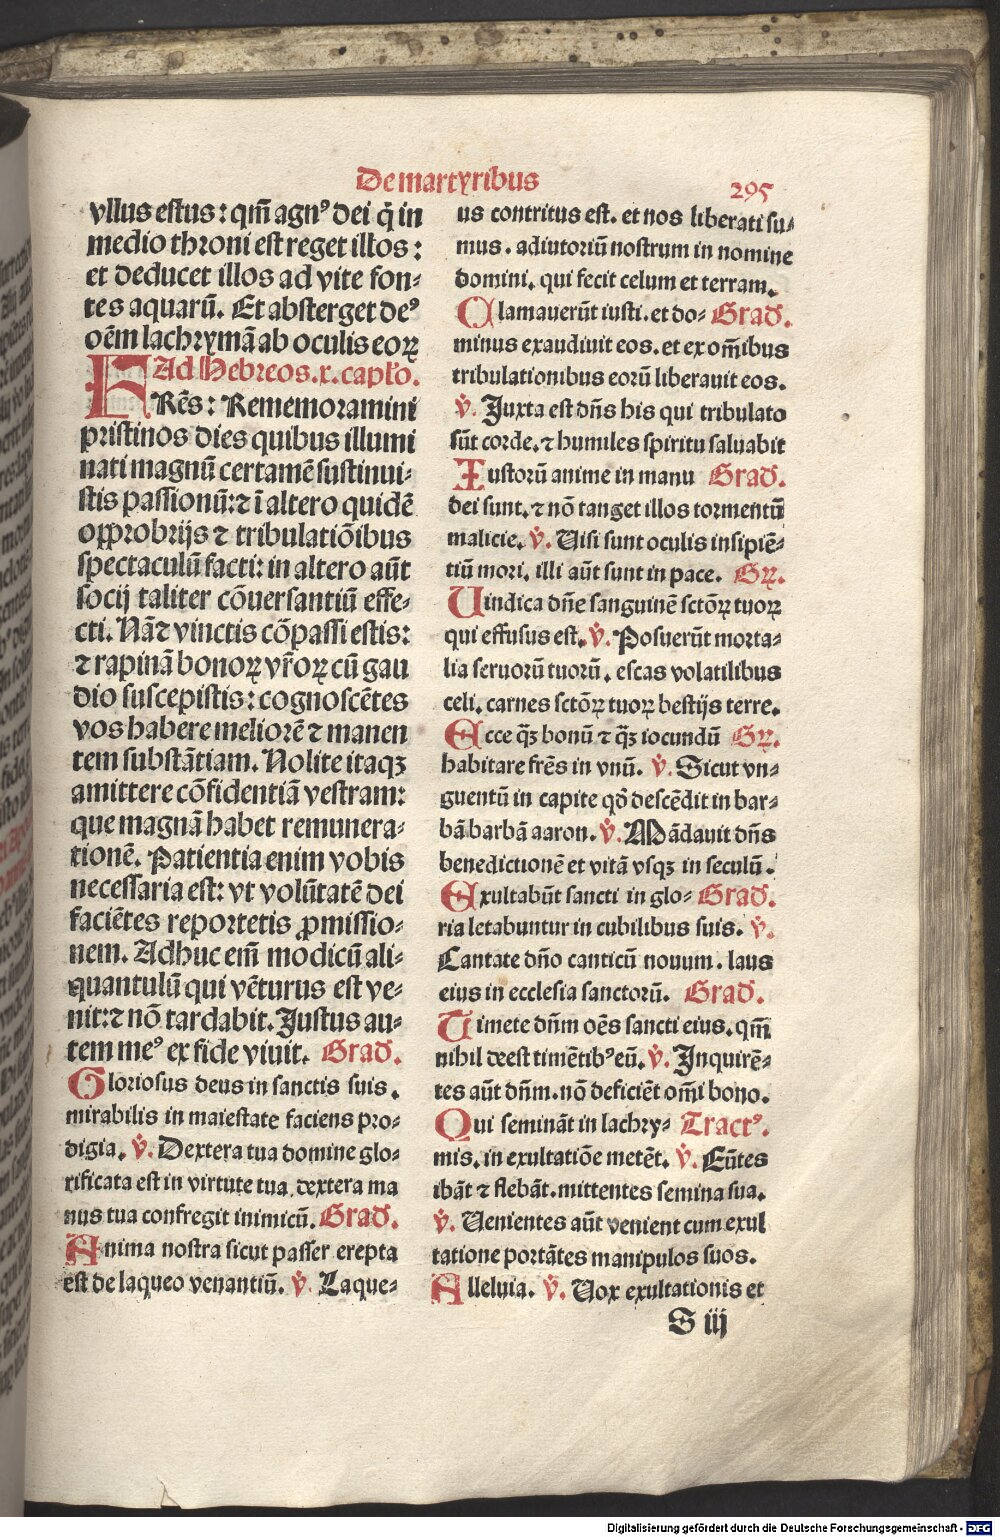 De martyribus
295
vllus estus: qm̄ agnꝰ dei q̇ in
medio throni est reget illos:
et deducet illos ad vite fon-
tes aquarū. Et absterget deꝰ
oēm lachrymā ab oculis eoꝝ
Ad Hebreos.x.capło.
FRēs: Rememoramini
pristinos dies quibus illumi
nati magnū certamē sustinui-
stis passionū: ⁊ ī altero quidē
opprobrijs ⁊ tribulatiōibus
spectaculū facti: in altero aūt
socij taliter cōuersantiū effe-
cti. Nā ⁊ vinctis cōpassi estis:
⁊ rapinā bonoꝝ vr̄oꝝ cū gau
dio suscepistis: cognoscētes
vos habere meliorē ⁊ manen
tem substātiam. Nolite itaqꝫ
amittere cōfidentiā vestram:
que magnā habet remunera-
tionē. Patientia enim vobis
necessaria est: vt volūtatē dei
faciētes reportetis ꝓmissio-
nem. Adhuc em̄ modicū ali-
quantulū qui vēturus est ve-
nit: ⁊ nō tardabit. Justus au-
tem meꝰ ex fide viuit. Grad.
Gloriosus deus in sanctis suis.
mirabilis in maiestate faciens pro-
digia. v̇. Dextera tua domine glo-
rificata est in virtute tua. dextera ma
nus tua confregit inimicū. Grad.
Anima nostra sicut passer erepta
est de laqueo venantiū. v̇. Laque-
us contritus est. et nos liberati su-
mus. adiutoriū nostrum in nomine
domini. qui fecit celum et terram.
Clamauerūt iusti. et do- Grad.
minus exaudiuit eos. et ex om̄ibus
tribulationibus eorū liberauit eos.
v̇. Juxta est dn̄s his qui tribulato
sūt corde. ⁊ humiles spiritu saluabit
Iustorū anime in manu Grad.
dei sunt. ⁊ nō tanget illos tormentū
malicie. v̇. Uisi sunt oculis insipiē-
tiū mori. illi aūt sunt in pace. Gꝝ.
Uindica dn̄e sanguinē sctōꝝ tuoꝝ
qui effusus est. v̇. Posuerūt morta-
lia seruorū tuorū. escas volatilibus
celi. carnes sctōꝝ tuoꝝ bestijs terre.
Ecce q̄ꝫ bonū ⁊ q̄ꝫ iocundū Gꝝ.
habitare frēs in vnū. v̇. Sicut vn-
guentū in capite qd̄ descēdit in bar-
bā barbā aaron. v̇. Mādauit dn̄s
benedictionē et vitā vsqꝫ in seculū.
Exultabūt sancti in glo- Grad.
ria letabuntur in cubilibus suis. v̇.
Cantate dn̄o canticū nouum. laus
eius in ecclesia sanctorū. Grad.
Timete dn̄m oēs sancti eius. qm̄
nihil deest timētibꝰ eū. v̇. Inquirē-
tes aūt dn̄m. nō deficiēt om̄i bono.
Qui semināt in lachry- Tractꝰ.
mis. in exultatiōe metēt. v̇. Eūtes
ibāt ⁊ flebāt. mittentes semina sua.
v̇. Uenientes aūt venient cum exul
tatione portātes manipulos suos.
Alleluia. v̇. Uox exultationis et
S iij
Digitalisierung gefördert durch die Deutsche Forschungsgemeinschaft - DFG